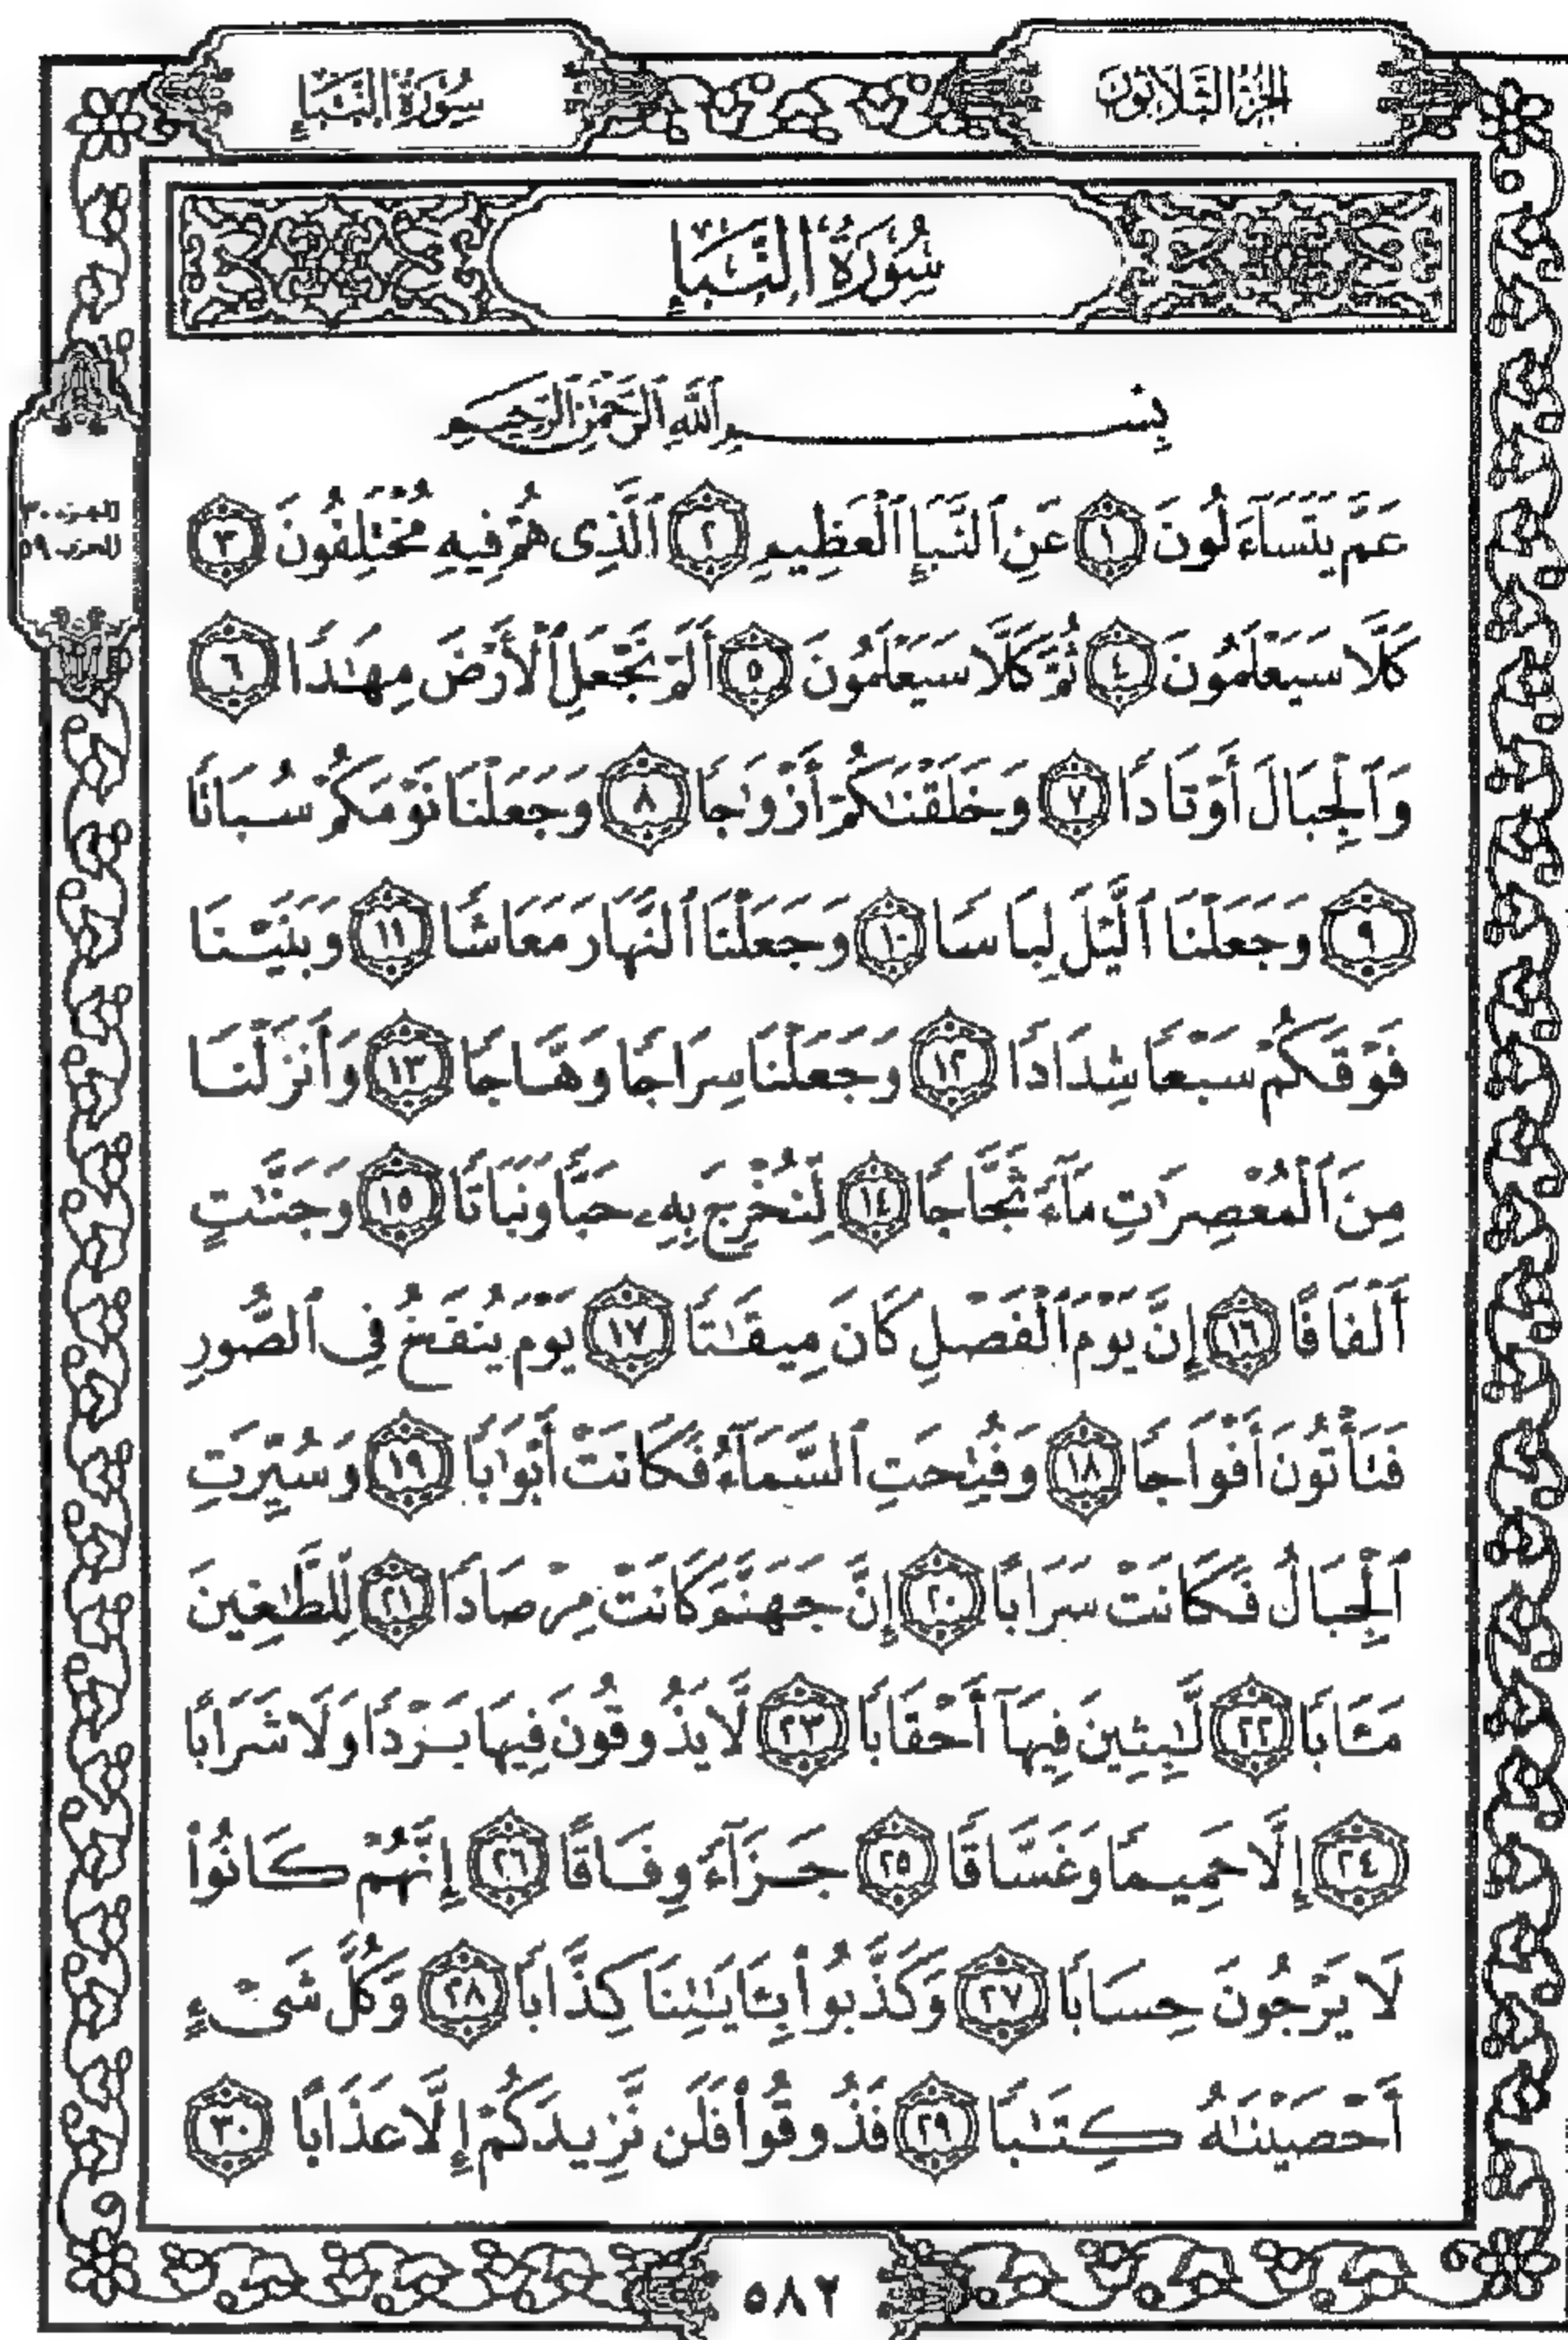 الجزء الثلاثون
سورة النبإ
سُورَةُ النَّبَإِ
بِسْمِ ٱللَّهِ ٱلرَّحْمَٰنِ ٱلرَّحِيمِ
الجزء ٣٠
الحزب ٥٩
عَمَّ يَتَسَآءَلُونَ ١ عَنِ ٱلنَّبَإِ ٱلْعَظِيمِ ٢ ٱلَّذِى هُمْ فِيهِ مُخْتَلِفُونَ ٣
كَلَّا سَيَعْلَمُونَ ٤ ثُمَّ كَلَّا سَيَعْلَمُونَ ٥ أَلَمْ نَجْعَلِ ٱلْأَرْضَ مِهَٰدًا ٦
وَٱلْجِبَالَ أَوْتَادًا ٧ وَخَلَقْنَٰكُمْ أَزْوَٰجًا ٨ وَجَعَلْنَا نَوْمَكُمْ سُبَاتًا
٩ وَجَعَلْنَا ٱلَّيْلَ لِبَاسًا ١٠ وَجَعَلْنَا ٱلنَّهَارَ مَعَاشًا ١١ وَبَنَيْنَا
فَوْقَكُمْ سَبْعًا شِدَادًا ١٢ وَجَعَلْنَا سِرَاجًا وَهَّاجًا ١٣ وَأَنزَلْنَا
مِنَ ٱلْمُعْصِرَٰتِ مَآءً ثَجَّاجًا ١٤ لِّنُخْرِجَ بِهِۦ حَبًّا وَنَبَاتًا ١٥ وَجَنَّٰتٍ
أَلْفَافًا ١٦ إِنَّ يَوْمَ ٱلْفَصْلِ كَانَ مِيقَٰتًا ١٧ يَوْمَ يُنفَخُ فِى ٱلصُّورِ
فَتَأْتُونَ أَفْوَاجًا ١٨ وَفُتِحَتِ ٱلسَّمَآءُ فَكَانَتْ أَبْوَٰبًا ١٩ وَسُيِّرَتِ
ٱلْجِبَالُ فَكَانَتْ سَرَابًا ٢٠ إِنَّ جَهَنَّمَ كَانَتْ مِرْصَادًا ٢١ لِّلطَّٰغِينَ
مَـَٔابًا ٢٢ لَّٰبِثِينَ فِيهَآ أَحْقَابًا ٢٣ لَّا يَذُوقُونَ فِيهَا بَرْدًا وَلَا شَرَابًا
٢٤ إِلَّا حَمِيمًا وَغَسَّاقًا ٢٥ جَزَآءً وِفَاقًا ٢٦ إِنَّهُمْ كَانُوا۟
لَا يَرْجُونَ حِسَابًا ٢٧ وَكَذَّبُوا۟ بِـَٔايَٰتِنَا كِذَّابًا ٢٨ وَكُلَّ شَىْءٍ
أَحْصَيْنَٰهُ كِتَٰبًا ٢٩ فَذُوقُوا۟ فَلَن نَّزِيدَكُمْ إِلَّا عَذَابًا ٣٠
٥٨٢